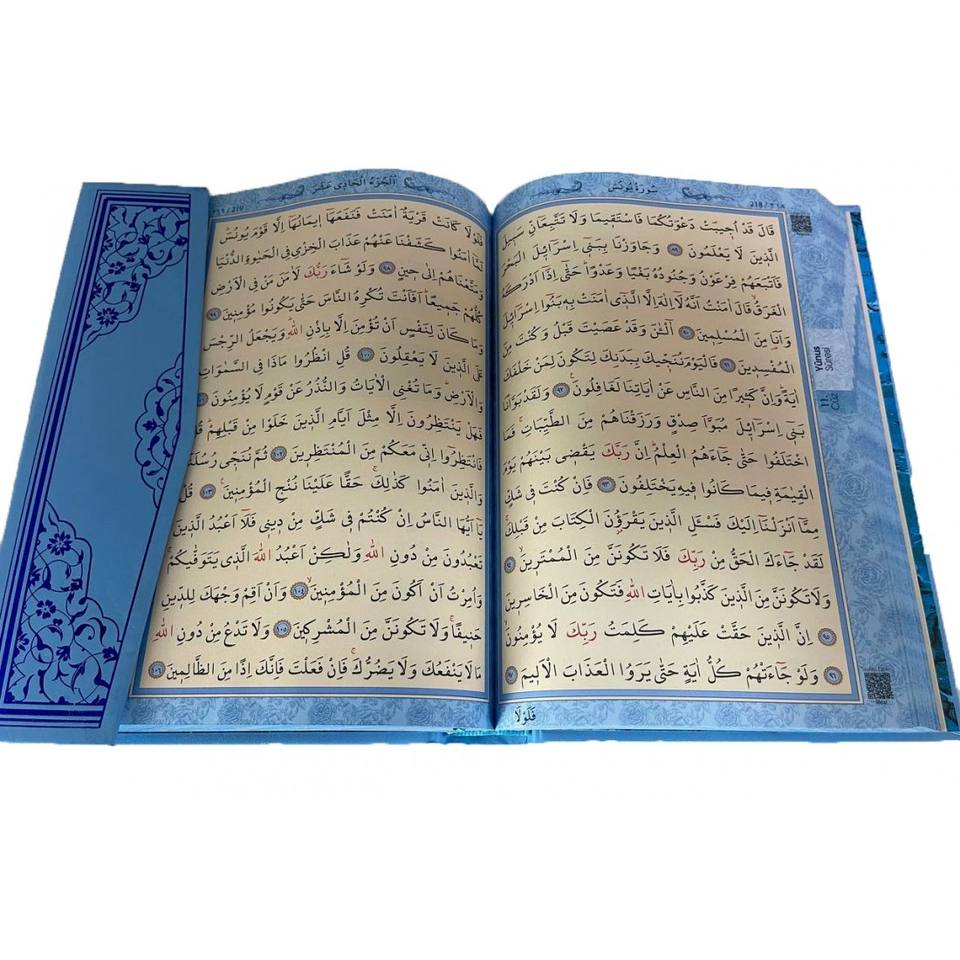 سُورَةُ يُونُسَ
٢١٨ / 218
قَالَ قَدْ اُجٖيبَتْ دَعْوَتُكُمَا فَاسْتَقٖيمَا وَلَا تَتَّبِعَٓانِّ سَبٖيلَ
الَّذٖينَ لَا يَعْلَمُونَ ﴿٨٩﴾ وَجَاوَزْنَا بِبَنٖٓي اِسْرَٓائٖلَ الْبَحْرَ
فَاَتْبَعَهُمْ فِرْعَوْنُ وَجُنُودُهُ بَغْيًا وَعَدْوًاؕ حَتّٰٓى اِذَٓا اَدْرَكَهُ
الْغَرَقُۙ قَالَ اٰمَنْتُ اَنَّهُ لَٓا اِلٰهَ اِلَّا الَّذٖٓي اٰمَنَتْ بِهٖ بَنُٓوا اِسْرَٓائٖلَ
وَاَنَا مِنَ الْمُسْلِمٖينَ ﴿٩٠﴾ آٰلْـٰٔنَ وَقَدْ عَصَيْتَ قَبْلُ وَكُنْتَ مِنَ
الْمُفْسِدٖينَ ﴿٩١﴾ فَالْيَوْمَ نُنَجّٖيكَ بِبَدَنِكَ لِتَكُونَ لِمَنْ خَلْفَكَ
اٰيَةًؕ وَاِنَّ كَثٖيرًا مِنَ النَّاسِ عَنْ اٰيَاتِنَا لَغَافِلُونَ ﴿٩٢﴾ وَلَقَدْ بَوَّأْنَا
بَنٖٓي اِسْرَٓائٖلَ مُبَوَّاَ صِدْقٍ وَرَزَقْنَاهُمْ مِنَ الطَّيِّبَاتِۚ فَمَا
اخْتَلَفُوا حَتّٰى جَٓاءَهُمُ الْعِلْمُؕ اِنَّ رَبَّكَ يَقْضٖي بَيْنَهُمْ يَوْمَ
الْقِيٰمَةِ فٖيمَا كَانُوا فٖيهِ يَخْتَلِفُونَ ﴿٩٣﴾ فَاِنْ كُنْتَ فٖي شَكٍّ
مِمَّٓا اَنْزَلْنَٓا اِلَيْكَ فَسْـَٔلِ الَّذٖينَ يَقْرَؤُ۫نَ الْكِتَابَ مِنْ قَبْلِكَۚ
لَقَدْ جَٓاءَكَ الْحَقُّ مِنْ رَبِّكَ فَلَا تَكُونَنَّ مِنَ الْمُمْتَرٖينَۙ ﴿٩٤﴾
وَلَا تَكُونَنَّ مِنَ الَّذٖينَ كَذَّبُوا بِاٰيَاتِ اللّٰهِ فَتَكُونَ مِنَ الْخَاسِرٖينَ
﴿٩٥﴾ اِنَّ الَّذٖينَ حَقَّتْ عَلَيْهِمْ كَلِمَتُ رَبِّكَ لَا يُؤْمِنُونَۙ
﴿٩٦﴾ وَلَوْ جَٓاءَتْهُمْ كُلُّ اٰيَةٍ حَتّٰى يَرَوُا الْعَذَابَ الْاَلٖيمَ ﴿٩٧﴾
فَلَوْلَا
Yûnus
Sûresi
11.
Cüz
اَلْجُزْءُ الْحَادٖي عَشَرَ
٢١٩ / 219
فَلَوْلَا كَانَتْ قَرْيَةٌ اٰمَنَتْ فَنَفَعَهَٓا اٖيمَانُهَٓا اِلَّا قَوْمَ يُونُسَؕ
لَمَّٓا اٰمَنُوا كَشَفْنَا عَنْهُمْ عَذَابَ الْخِزْيِ فِي الْحَيٰوةِ الدُّنْيَا
وَمَتَّعْنَاهُمْ اِلٰى حٖينٍ ﴿٩٨﴾ وَلَوْ شَٓاءَ رَبُّكَ لَاٰمَنَ مَنْ فِي الْاَرْضِ
كُلُّهُمْ جَمٖيعًاؕ اَفَاَنْتَ تُكْرِهُ النَّاسَ حَتّٰى يَكُونُوا مُؤْمِنٖينَ ﴿٩٩﴾
وَمَا كَانَ لِنَفْسٍ اَنْ تُؤْمِنَ اِلَّا بِاِذْنِ اللّٰهِؕ وَيَجْعَلُ الرِّجْسَ
عَلَى الَّذٖينَ لَا يَعْقِلُونَ ﴿١٠٠﴾ قُلِ انْظُرُوا مَاذَا فِي السَّمٰوَاتِ
وَالْاَرْضِؕ وَمَا تُغْنِي الْاٰيَاتُ وَالنُّذُرُ عَنْ قَوْمٍ لَا يُؤْمِنُونَ ﴿١٠١﴾
فَهَلْ يَنْتَظِرُونَ اِلَّا مِثْلَ اَيَّامِ الَّذٖينَ خَلَوْا مِنْ قَبْلِهِمْؕ قُلْ
فَانْتَظِرُٓوا اِنّٖي مَعَكُمْ مِنَ الْمُنْتَظِرٖينَ ﴿١٠٢﴾ ثُمَّ نُنَجّٖي رُسُلَنَا
وَالَّذٖينَ اٰمَنُوا كَذٰلِكَۚ حَقًّا عَلَيْنَا نُنْجِ الْمُؤْمِنٖينَ۟ ﴿١٠٣﴾ قُلْ
يَٓا اَيُّهَا النَّاسُ اِنْ كُنْتُمْ فٖي شَكٍّ مِنْ دٖينٖي فَلَٓا اَعْبُدُ الَّذٖينَ
تَعْبُدُونَ مِنْ دُونِ اللّٰهِ وَلٰكِنْ اَعْبُدُ اللّٰهَ الَّذٖي يَتَوَفّٰيكُمْۚ
وَاُمِرْتُ اَنْ اَكُونَ مِنَ الْمُؤْمِنٖينَۙ ﴿١٠٤﴾ وَاَنْ اَقِمْ وَجْهَكَ لِلدّٖينِ
حَنٖيفًاۚ وَلَا تَكُونَنَّ مِنَ الْمُشْرِكٖينَ ﴿١٠٥﴾ وَلَا تَدْعُ مِنْ دُونِ اللّٰهِ
مَا لَا يَنْفَعُكَ وَلَا يَضُرُّكَۚ فَاِنْ فَعَلْتَ فَاِنَّكَ اِذًا مِنَ الظَّالِمٖينَ ﴿١٠٦﴾